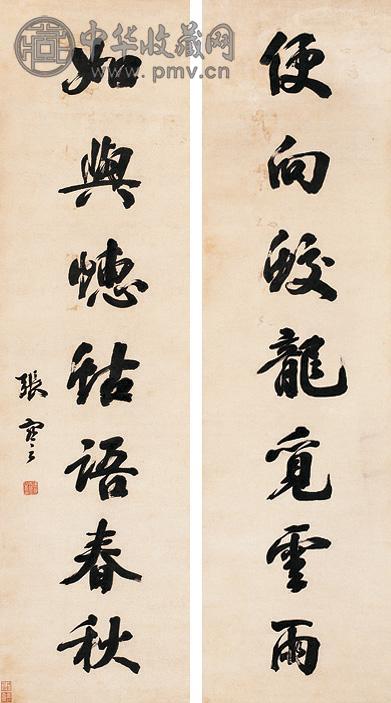 中华收藏网
www.pmv.cn
便向蛟龍覓雲雨
如與蟪蛄語春秋
張謇